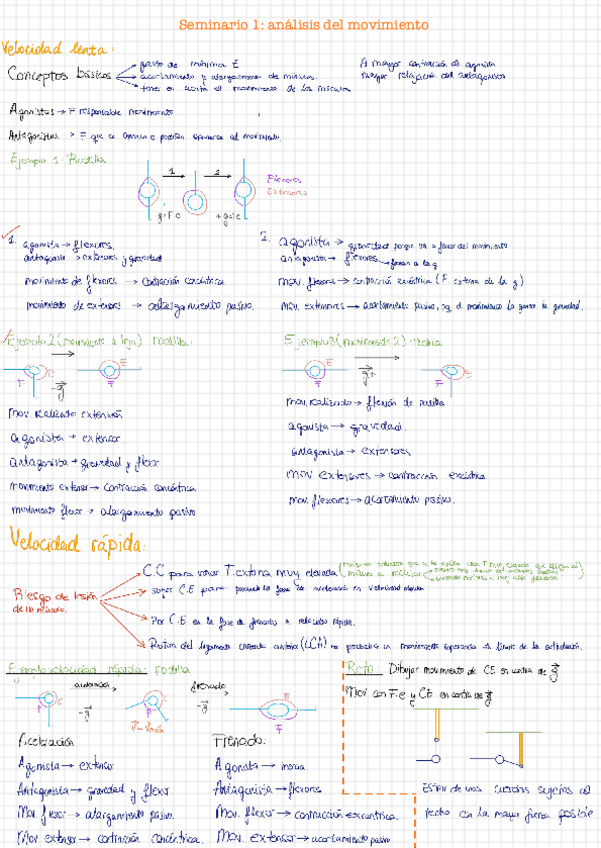 Seminario 1: análisis del movimiento
Velocidad lenta:
Conceptos básicos
gasto de mínima E
acortamiento y alargamiento de músculos.
tener en cuenta el movimiento de los músculos
A mayor contracción del agonista
mayor relajación del antagonista
Agonistas → F responsable movimiento
Antagonistas → F que se opone o podrían oponerse al movimiento.
Ejemplo 1: Rodilla
1
2
Flexores
Extensores
1. agonista → flexores.
antagonista → extensores y gravedad
movimiento de flexores → contracción concéntrica
movimiento de extensores → alargamiento pasivo.
2. agonista → gravedad porque va a favor del movimiento
antagonista → flexores
mov. flexores → contracción excéntrica (F externa de la g)
mov. extensores → acortamiento pasivo, el movimiento lo genera la gravedad.
Ejemplo 2 (movimiento 1) rodilla:
E
F
E
F
-g
mov. realizado extensión
agonista → extensor
antagonista → gravedad y flexor
movimiento extensor → contracción concéntrica
movimiento flexor → alargamiento pasivo
Ejemplo 3 (movimiento 2): rodilla
E
F
E
F
g+
mov. realizado → flexión de rodilla
agonista → gravedad.
antagonista → extensores
mov extensores → contracción excéntrica
mov. flexores → acortamiento pasivo.
Velocidad rápida:
Riesgo de lesión
de la músculo.
C.C para vencer T. externa muy elevada
Por C.E en la fase de frenado a velocidad rápida.
Rotura del ligamento cruzado anterior (LCA)
Ejemplo velocidad rápida: rodilla
aceleración
-g
E
F
frenado
-g
E
F
Aceleración
Agonista → extensor
Antagonista → gravedad y flexor
Mov. flexor → alargamiento pasivo.
Mov extensor → contracción concéntrica.
Frenado:
Agonista → inercia
Antagonista → flexores
Mov. flexor → contracción excéntrica.
Mov. extensor → acortamiento pasivo
Reto: Dibujar movimiento de CE en contra de g
Mov con Fe y CE en contra de g
Estirar de unas cuerdas sujetas al
techo con la mayor fuerza posible